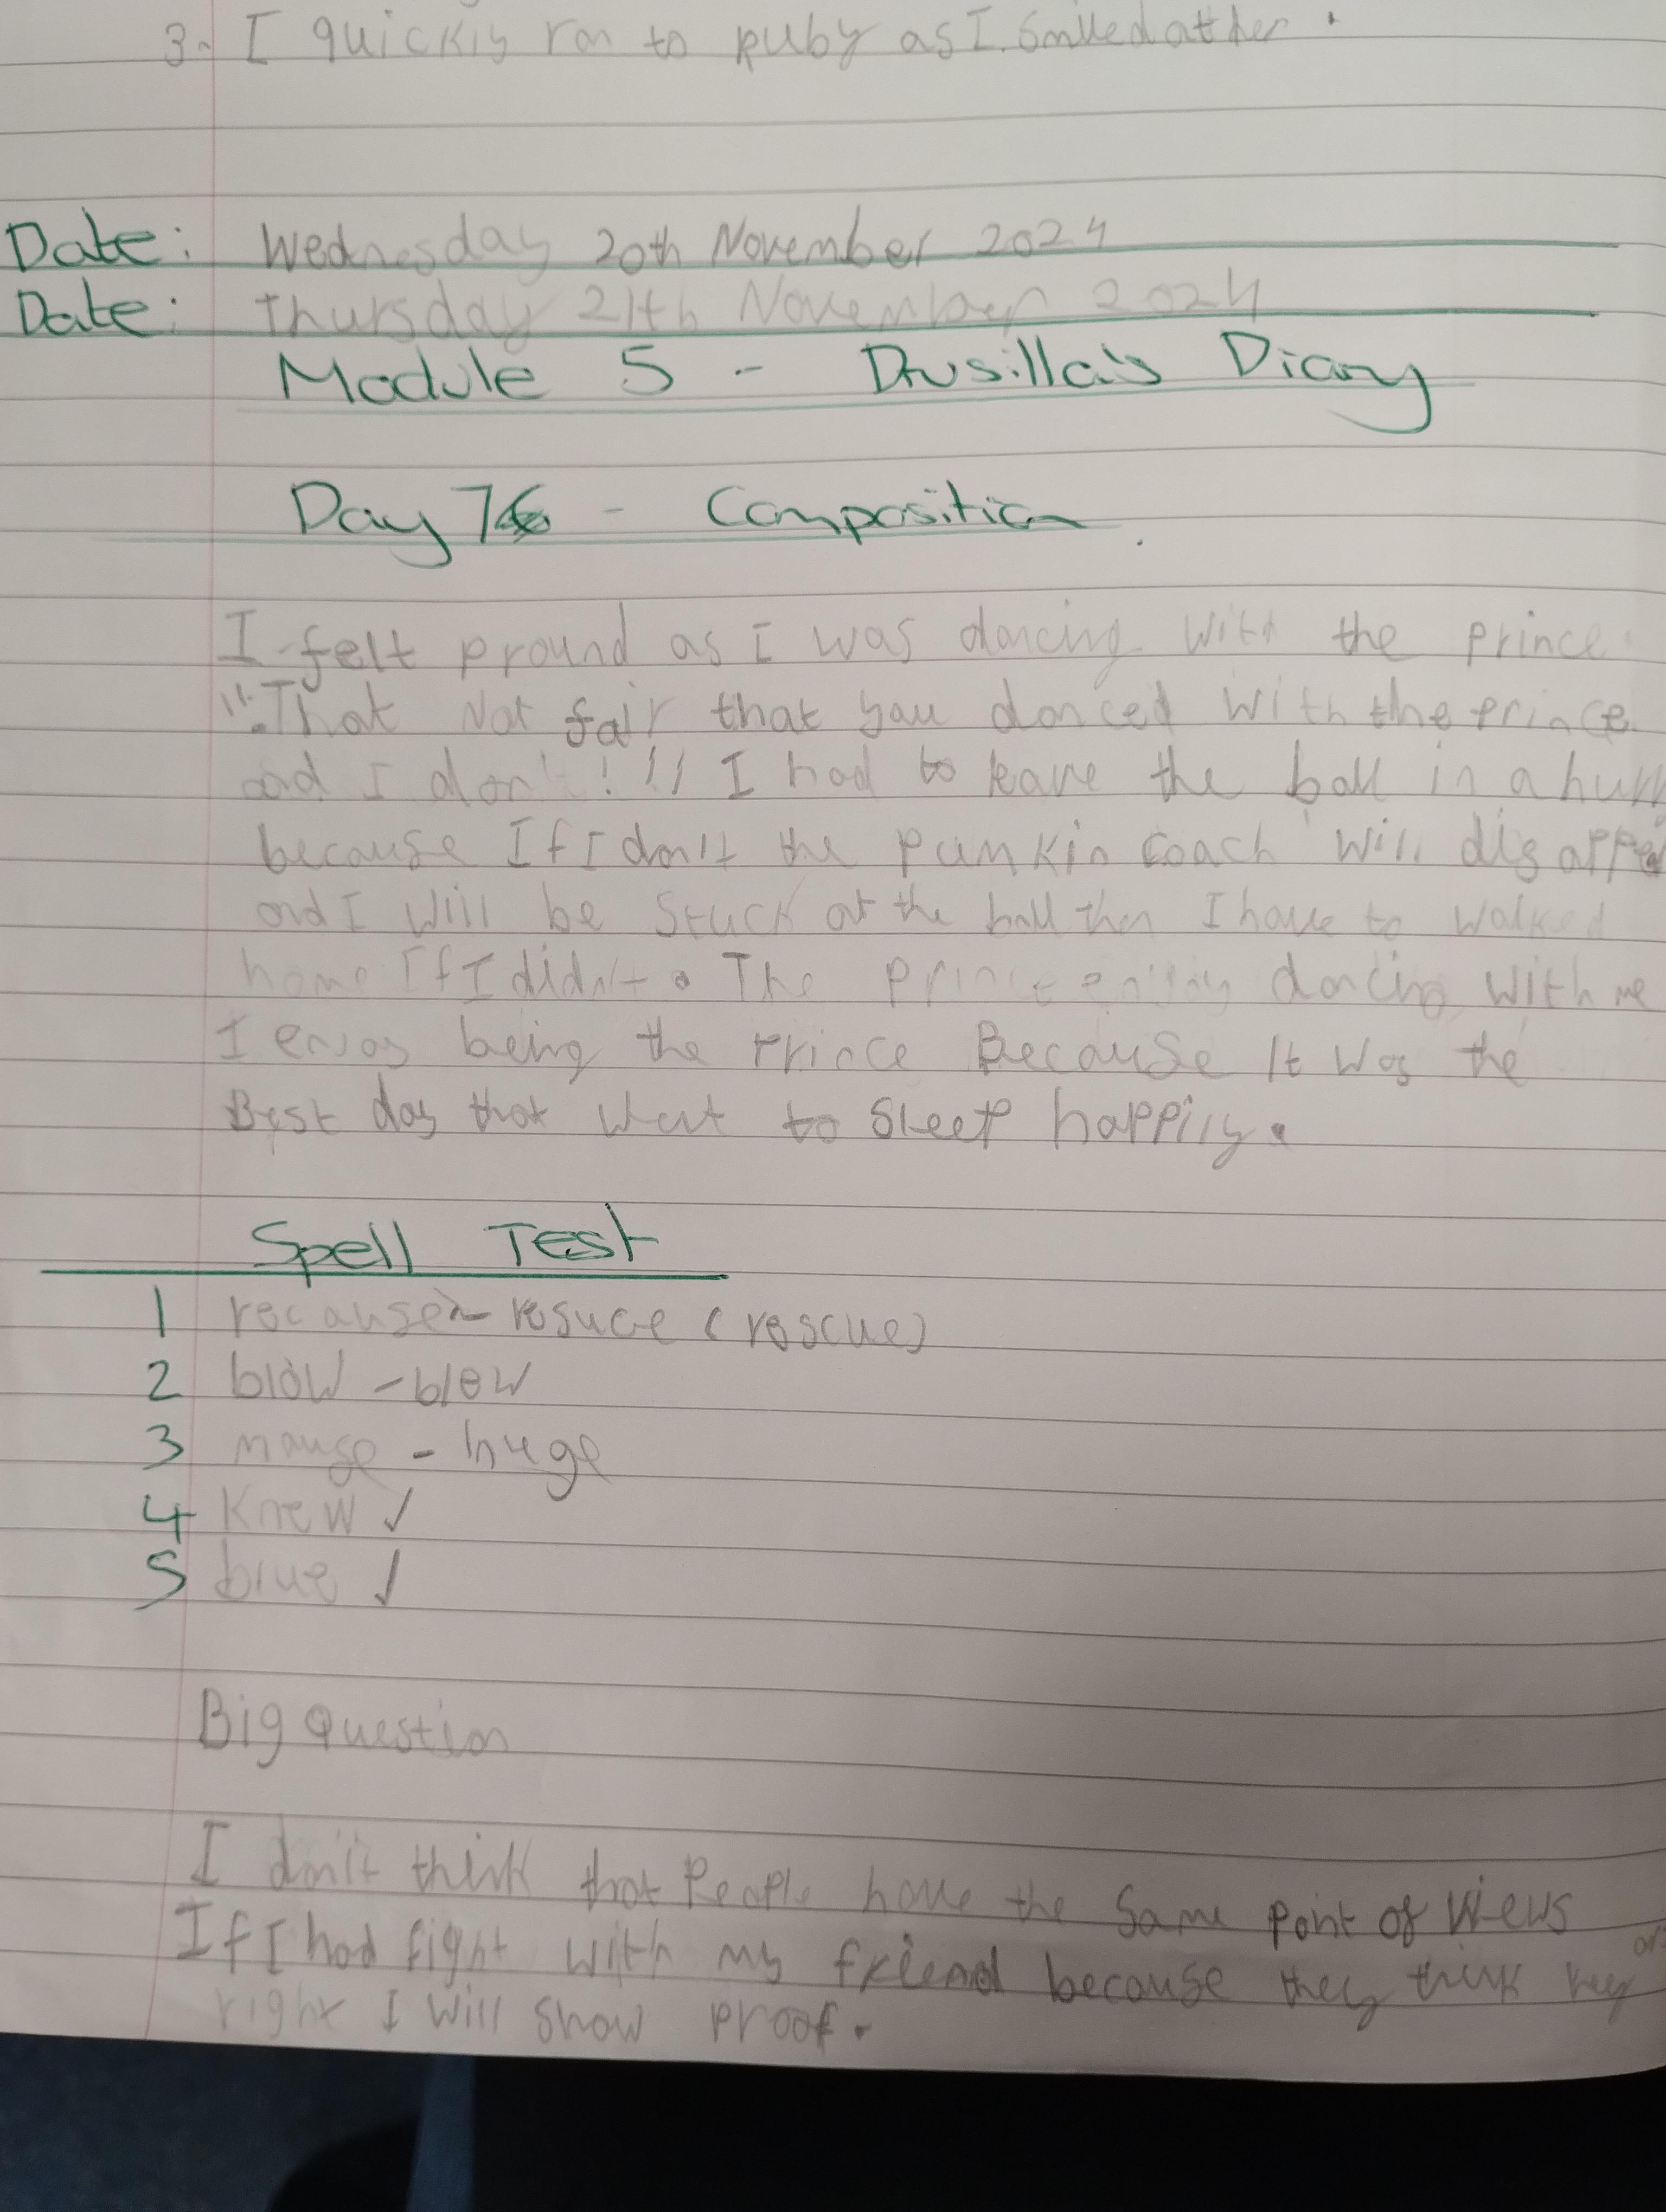 3. I quickly ran to Ruby as I. Smiled at her.
Date: Wednesday 20th November 2024
Date: Thursday 21th November 2024
Module 5 - Drusilla's Diary
Day 76 - Composition
I felt pround as I was dancing with the prince.
"That Not fair that you danced with the prince
and I don't!!" I had to leave the ball in a
because If I don't the pumkin coach will
and I will be stuck at the ball then I have to walked
home If I didn't. The prince enjoy dancing with me
I being the Prince Because It was the
Best day that to sleep happily.
Spell Test
1 recause - resuce (rescue)
2 blow - blew
3 - huge
4 Knew ✓
5 blue ✓
Big Question
I don't think that People have the Same point of views
If I had fight with my friend because they think
right I will show proof.